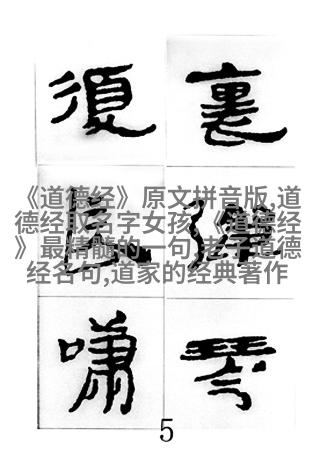 裏彈琴
復長嘯
《道德经》原文拼音版,道
德经取名字女孩,《道德经
》最精髓的一句,老子道德
经名句,道家的经典著作
5